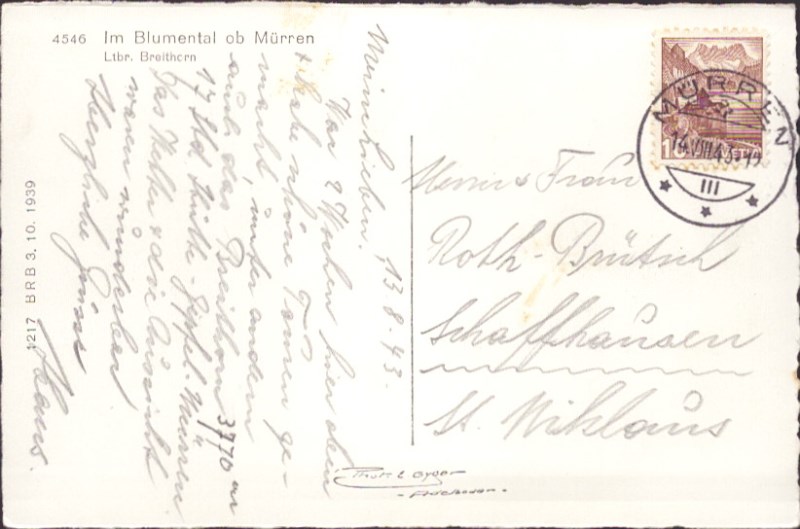 4546 Im Blumental ob Mürren
Ltbr. Breithorn
1217 BRB 3. 10. 1939
MÜRREN
14.VIII.43
III
10
Meine Lieben. 13.8.43.
War 2 Wochen hier oben
+ habe schöne Touren ge-
macht, unter andern
auch das Breithorn 3770 m
17 Std. Hütte-Gipfel-Mürren
Das Wetter & die Aussicht
waren wunderbar
Herzliche Grüsse
Hans.
Herrn & Frau
Roth-Brütsch
Schaffhausen
St. Niklaus
Gyger